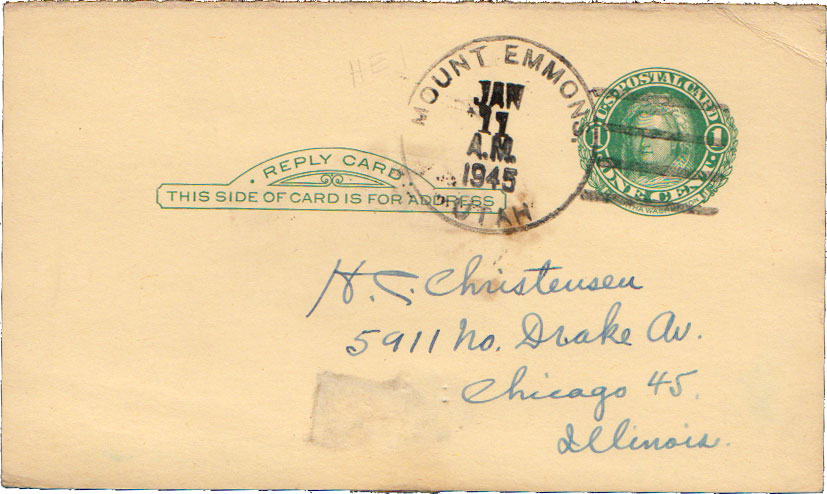 MOUNT EMMONS.
JAN
11
A.M.
1945
UTAH
U.S. POSTAL CARD
1 1
ONE CENT
MARTHA WASHINGTON
REPLY CARD
THIS SIDE OF CARD IS FOR ADDRESS
H. C. Christensen
5911 No. Drake Av.
Chicago 45.
Illinois.